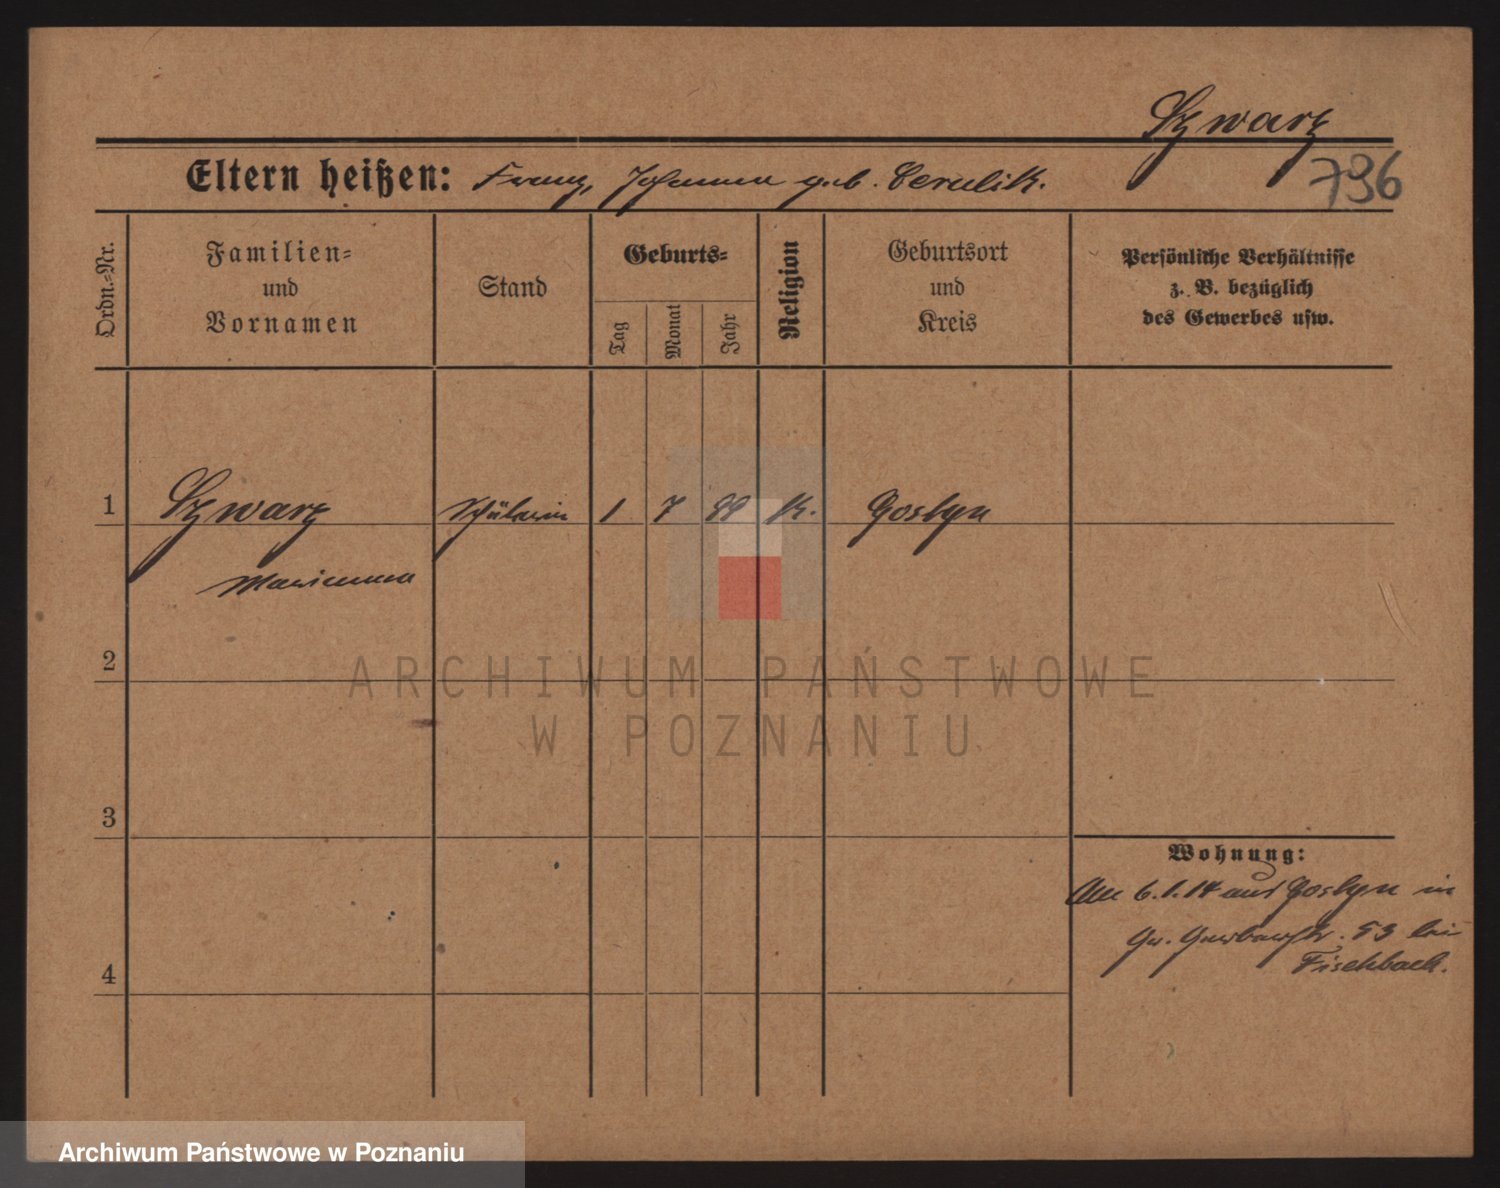 Szwarz
Eltern heißen: Franz, Johanna geb. Cerulik.
796
Ordn.-Nr.
Familien- und Vornamen
Stand
Geburts-
Tag
Monat
Jahr
Religion
Geburtsort und Kreis
Persönliche Verhältnisse
z. B. bezüglich
des Gewerbes usw.
1 Szwarz Schülerin 1 7 99 K. Gostyn
Marianna
2
ARCHIWUM PAŃSTWOWE
W POZNANIU
3
Wohnung:
Am 6.1.14 aus Gostyn in
53 bei
Fischbach.
4
Archiwum Państwowe w Poznaniu